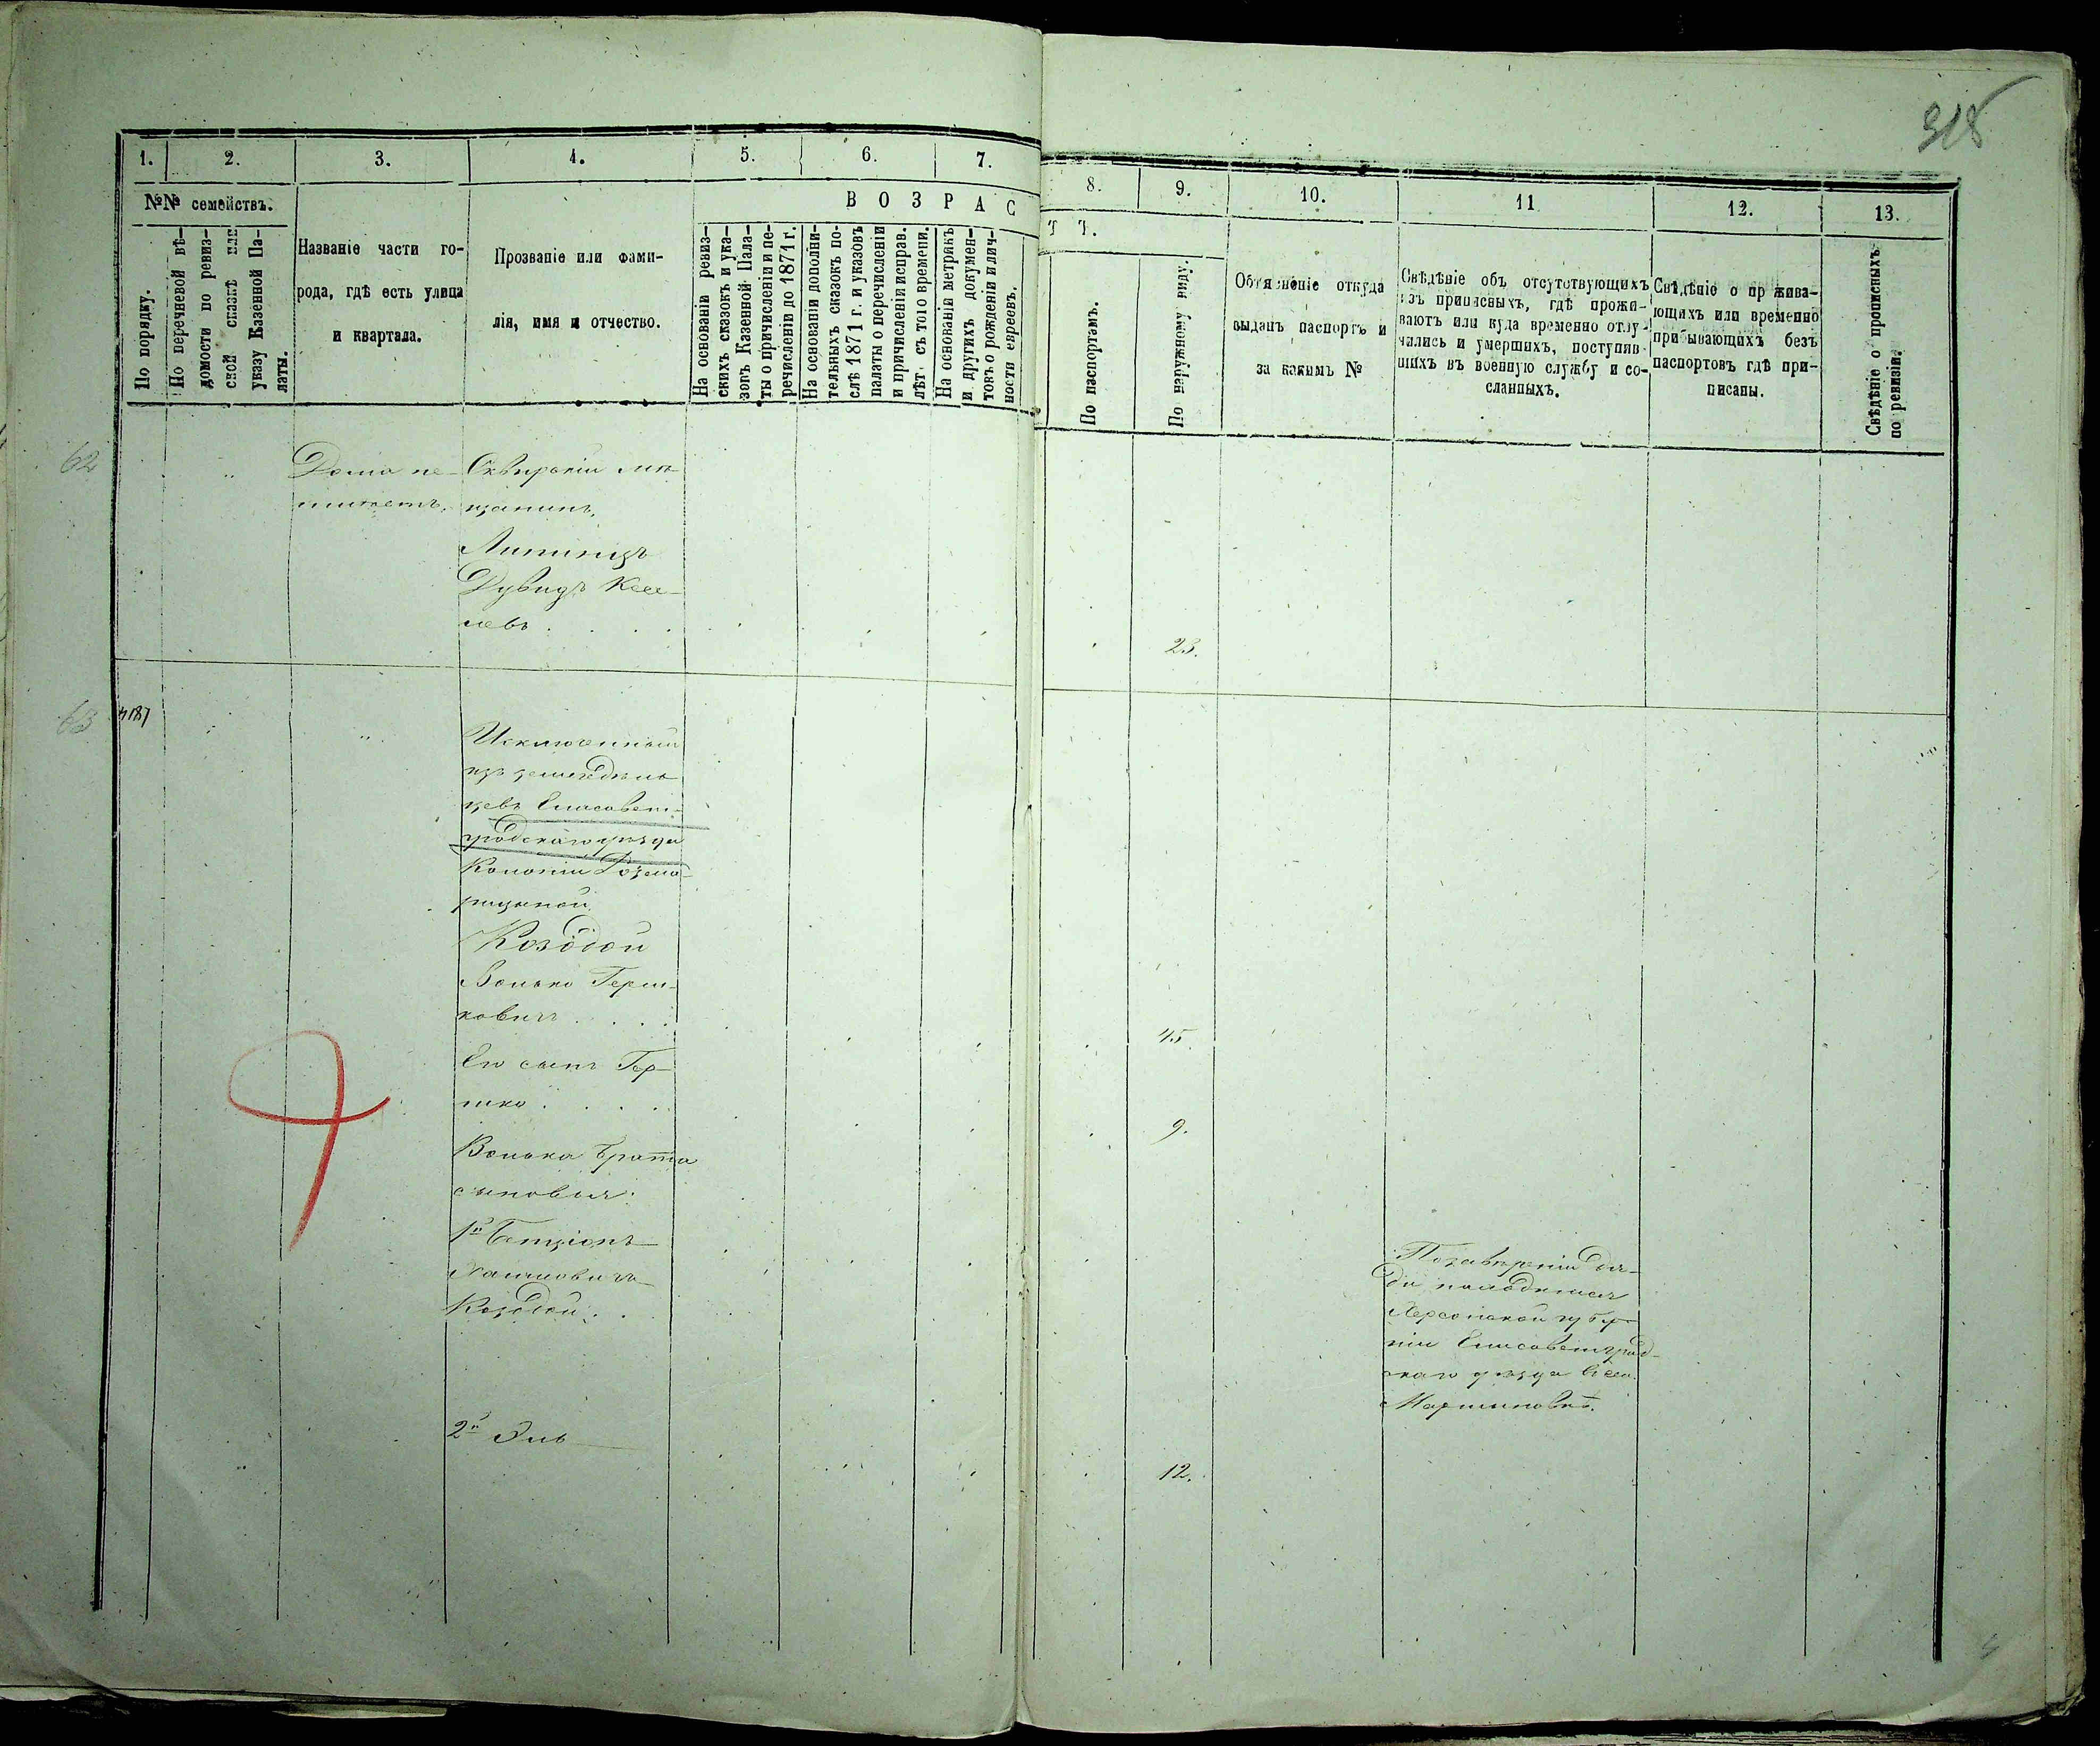 318
1.
2.
3.
4.
5.
6.
7.
№№ семействъ.
По порядку.
По перечневой вѣ-
домости по ревиз-
ской сказкѣ или
указу Казенной Па-
латы.
Названіе части го-
рода, гдѣ есть улица
и квартала.
Прозваніе или фами-
лія, имя и отчество.
ВОЗРАС
На основаніи ревиз-
скихъ сказокъ и ука-
зовъ Казенной Пала-
ты о причисленіи и пе-
речисленіи до 1871 г.
На основаніи дополни-
тельныхъ сказокъ по-
слѣ 1871 г. и указовъ
палаты о перечисленіи
и причисленіи исправ.
лѣт. съ того времени.
На основаніи метрикъ
и другихъ докумен-
товъ о рожденіи и лич-
ности евреевъ.
8.
9.
10.
11
12.
13.
Т Ъ.
По паспортамъ.
По наружному виду.
Объясненіе откуда
выданъ паспортъ и
за какимъ №
Свѣдѣніе объ отсутствующихъ
изъ приписныхъ, гдѣ прожи-
ваютъ или куда временно отлу-
чились и умершихъ, поступив-
шихъ въ военную службу и со-
сланныхъ.
Свѣдѣніе о прожива-
ющихъ или временно
прибывающихъ безъ
паспортовъ гдѣ при-
писаны.
Свѣдѣніе о прописныхъ
по ревизіи.
62
Дома не-
имѣетъ.
Сквирскій мѣ-
щанинъ.
Липинцъ
Дувидъ Кее-
левъ
23.
63
4187
Исключенный
изъ земледѣль
цевъ Елисавет-
градскаго уѣзда
Колоніи
Козодой
Волько Герш-
ковичъ
45.
Его сынъ Гер-
шко
9.
Волька брата
сыновья:
1й Бенціонъ
Хаимовичъ
Козодой.
По завѣренію дя-
ди находится
Херсонской губер
ніи Елисаветград-
скаго уѣзда в сел.
Мартиновкѣ.
2й Эль
12.